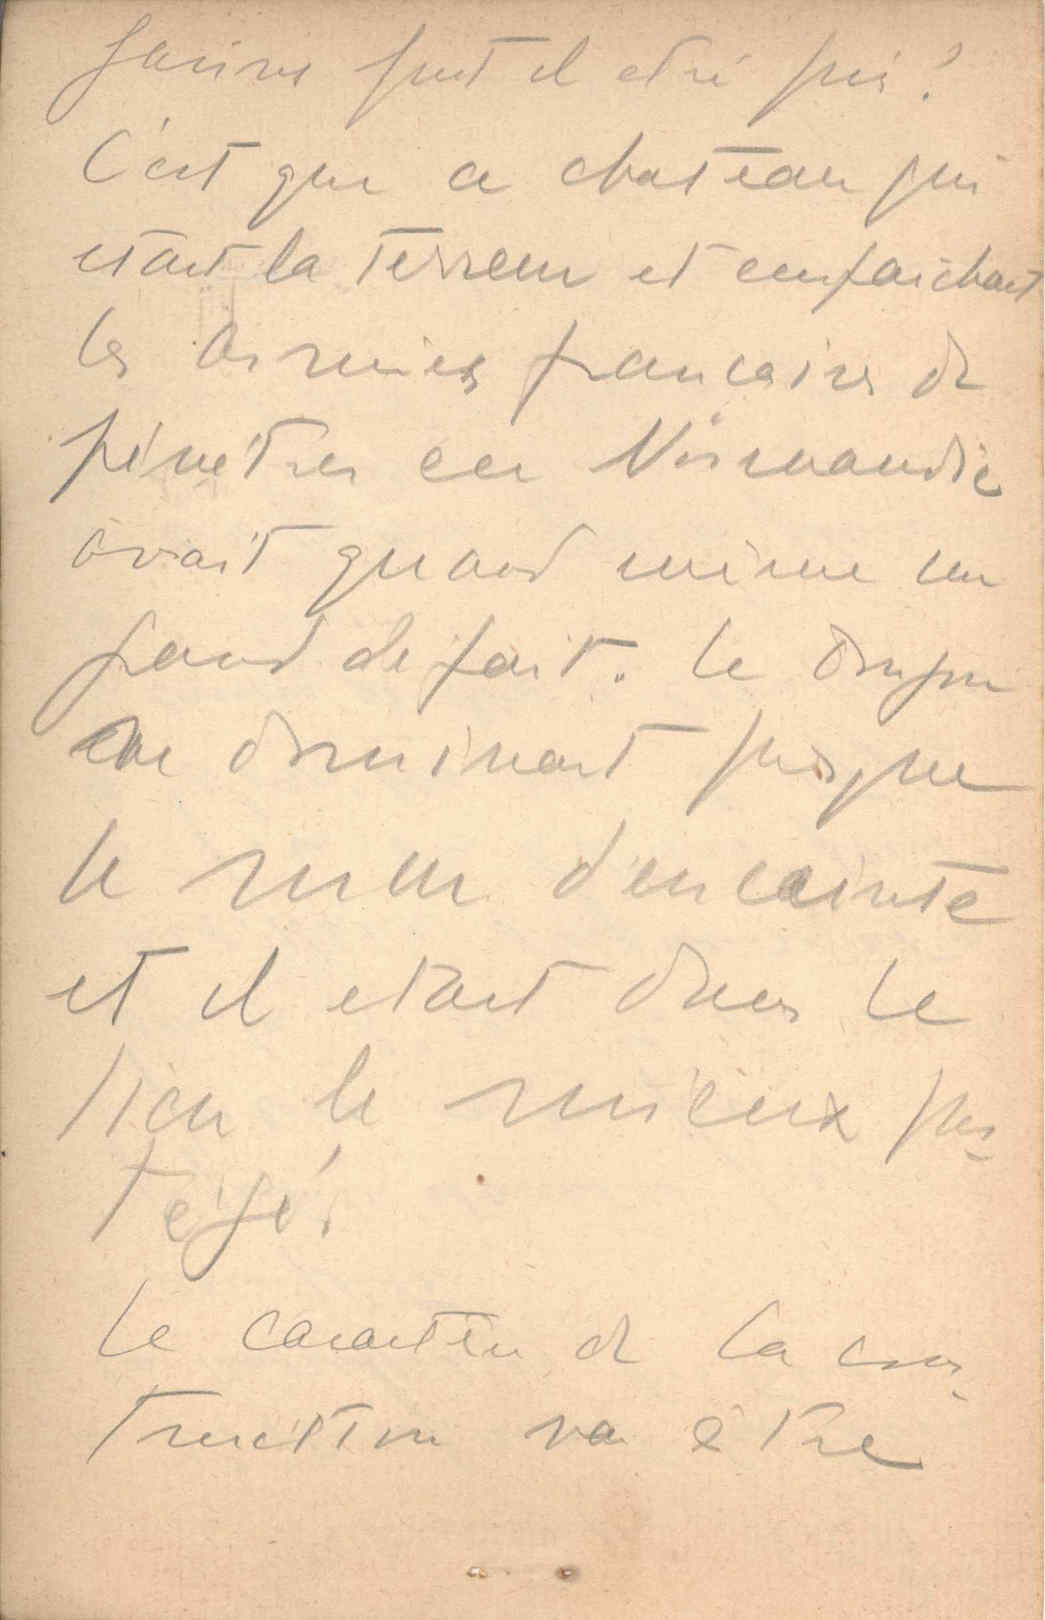 fut il été pris ?
C'est que ce chateau qui
etait la terreur et empaichait
les Armées francaises de
pénétrer en Normandie
avait quand même un
grand defait. Le donjon
ne dominait presque
le mur d'enceinte
et il etait dans le
lieu le mieux pro-
tégé.
Le caractère de la cons-
truction va être